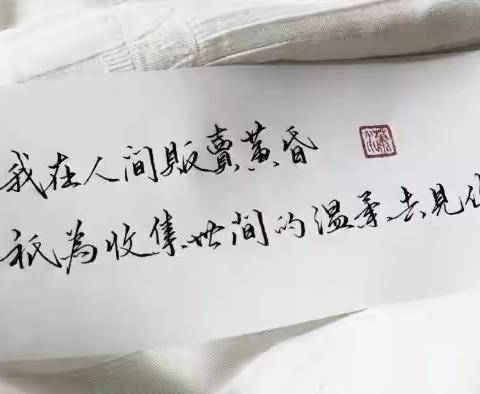 我在人間販賣黄昏
祇為收集世間的温柔去見